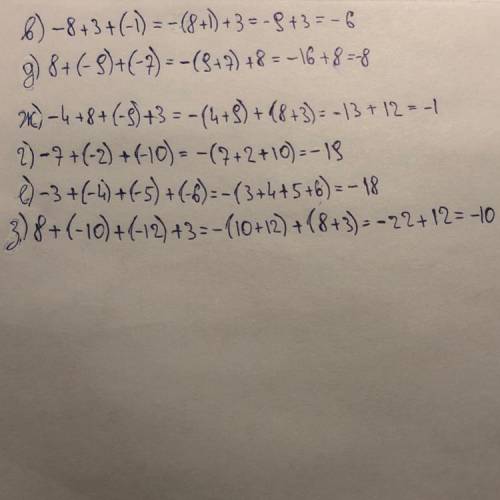 в) -8+3+(-1) = -(8+1)+3 = -9+3 = -6
д) 8+(-9)+(-7) = -(9+7)+8 = -16+8=-8
ж) -4+8+(-9)+3 = -(4+9)+(8+3) = -13+12 = -1
г) -7+(-2)+(-10) = -(7+2+10) = -19
е) -3+(-4)+(-5)+(-6) = -(3+4+5+6) = -18
з) 8+(-10)+(-12)+3 = -(10+12)+(8+3) = -22+12 = -10